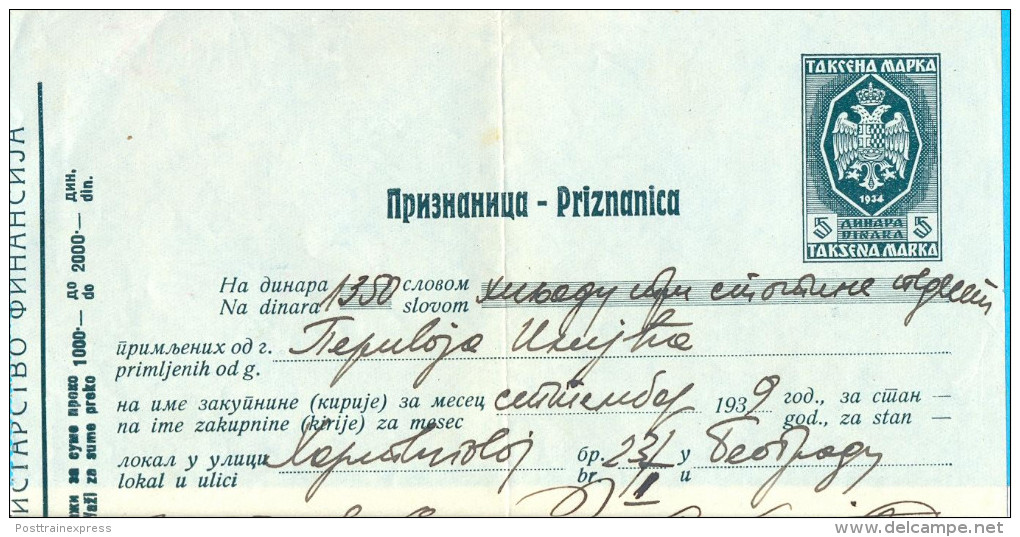 ТАКСЕНА МАРКА
1934
5 ДИНАРА 5
DINARA
TAKSENA MARKA
ИСТАРСТВО ФИНАНСИЈА
жи за суме преко 1000·— до 2000·— дин.
Važi za sume preko do din.
Признаница - Priznanica
На динара 1350 словом хиљаду три стотине педесет
Na dinara slovom
примљених од г. Перивоја Илијћа
primljenih od g.
на име закупнине (кирије) за месец септембар 1939 год., за стан —
na ime zakupnine (kirije) za mesec god., za stan —
локал у улици бр. 23/I у Београду
lokal u ulici br. u
Posttrainexpress
delcampe.net